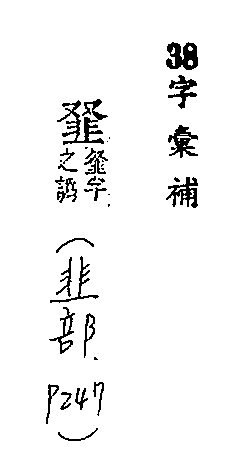 38字彙補
字
之譌
（韭部.P247）